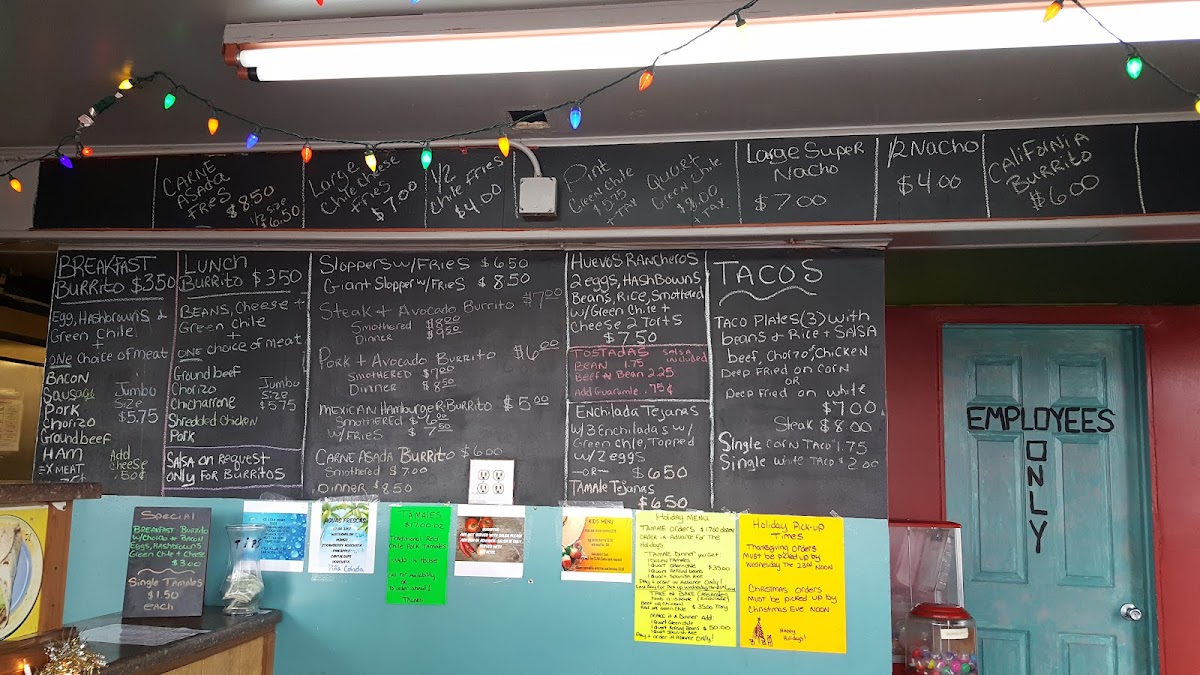 CARNE
ASADA
FRIES $8.50
1/2 SIZE
$6.50
Large
Chile Cheese
Fries
$7.00
1/2
Chile Fries
$4.00
Pint
Green Chile
$5.75
+ TAX
Quart
Green Chile
$8.00
+ TAX
Large Super
Nacho
$7.00
1/2 Nacho
$4.00
CALIFORNIA
BURRITO
$6.00
BREAKFAST
BURRITO $3.50
Egg, Hashbrowns &
Green Chile
+
ONE choice of meat
BACON
Sausage
Pork
Chorizo
Ground beef
HAM
EX MEAT
Jumbo
Size
$5.75
Add
Cheese
.50¢
LUNCH
BURRITO $3.50
BEANS, CHEESE +
Green Chile
+
ONE choice of meat
Ground beef
Chorizo
Chicharrone
Shredded Chicken
Pork
Jumbo
Size
$5.75
SALSA on Request
only for Burritos
Sloppers w/ Fries $6.50
Giant Slopper w/ Fries $8.50
Steak + Avocado Burrito $7.00
Smothered $8.00
Dinner $9.50
Pork + Avocado Burrito $6.00
Smothered $7.00
Dinner $8.50
MEXICAN Hamburger Burrito $5.00
Smothered $6.00
w/ Fries $7.50
CARNE ASADA BURRITO $6.00
Smothered $7.00
Dinner $8.50
Huevos Rancheros
2 eggs, HashBowns
Beans, Rice, Smothered
w/ Green Chile +
Cheese 2 Torts
$7.50
TOSTADAS
SALSA
included
BEAN 1.75
Beef n Bean 2.25
Add Guacamole .75¢
Enchilada Tejanas
w/3 Enchiladas w/
Green Chle, Topped
w/ 2 eggs
-OR- $6.50
TAMALE Tejanas
$6.50
TACOS
Taco Plates (3) with
beans & Rice + SALSA
beef, Chorizo, Chicken
Deep Fried on Corn
OR
Deep Fried on white
$7.00
Steak $8.00
Single corn Taco 1.75
Single white Taco $2.00
EMPLOYEES
ONLY
Special
BREAKFAST Burrito
w/ Chorizo + Bacon
Eggs, Hashbrowns
Green Chile + Cheese
$3.00
Single Tamales
$1.50
each
TIPS
AGUAS FRESCAS
Piña Colada
TAMALES
$17.00 DZ
Traditional Red
Chile Pork Tamales
KIDS MENU
Holiday Menu
TAMALE orders $17.00 dozen
order in advance for the
Holidays
TAMALE Dinner you Get
1 Dozen Tamales
1 Quart Green Chile
1 Quart Refried Beans
1 Quart Spanish Rice
$35.00
TAKE N BAKE
$35.00 Tray
MAKE it A Dinner Add
1 Quart Green Chile
1 Quart Refried Beans
1 Quart Spanish Rice
$50.00
Pay + order in Advance Only!
Holiday Pick-up
Times
Thanksgiving orders
Must be picked up by
Wednesday the 23rd NOON
Christmas orders
Must be picked up by
Christmas Eve NOON
Happy
Holidays!